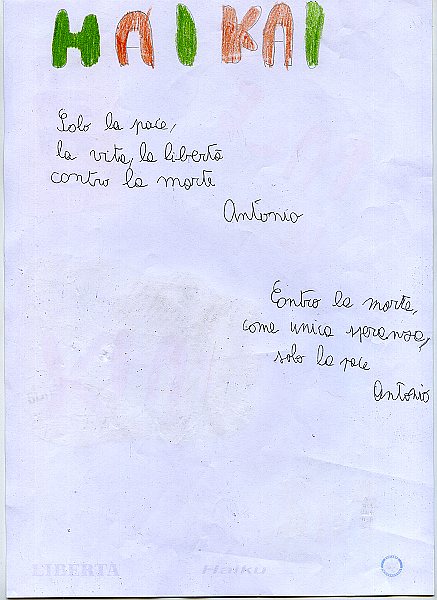 HAIKAI
Solo la pace,
la vita, la libertà
contro la morte
Antonio
Entro la morte,
come unica speranza,
solo la pace
Antonio
LIBERTA
Haiku